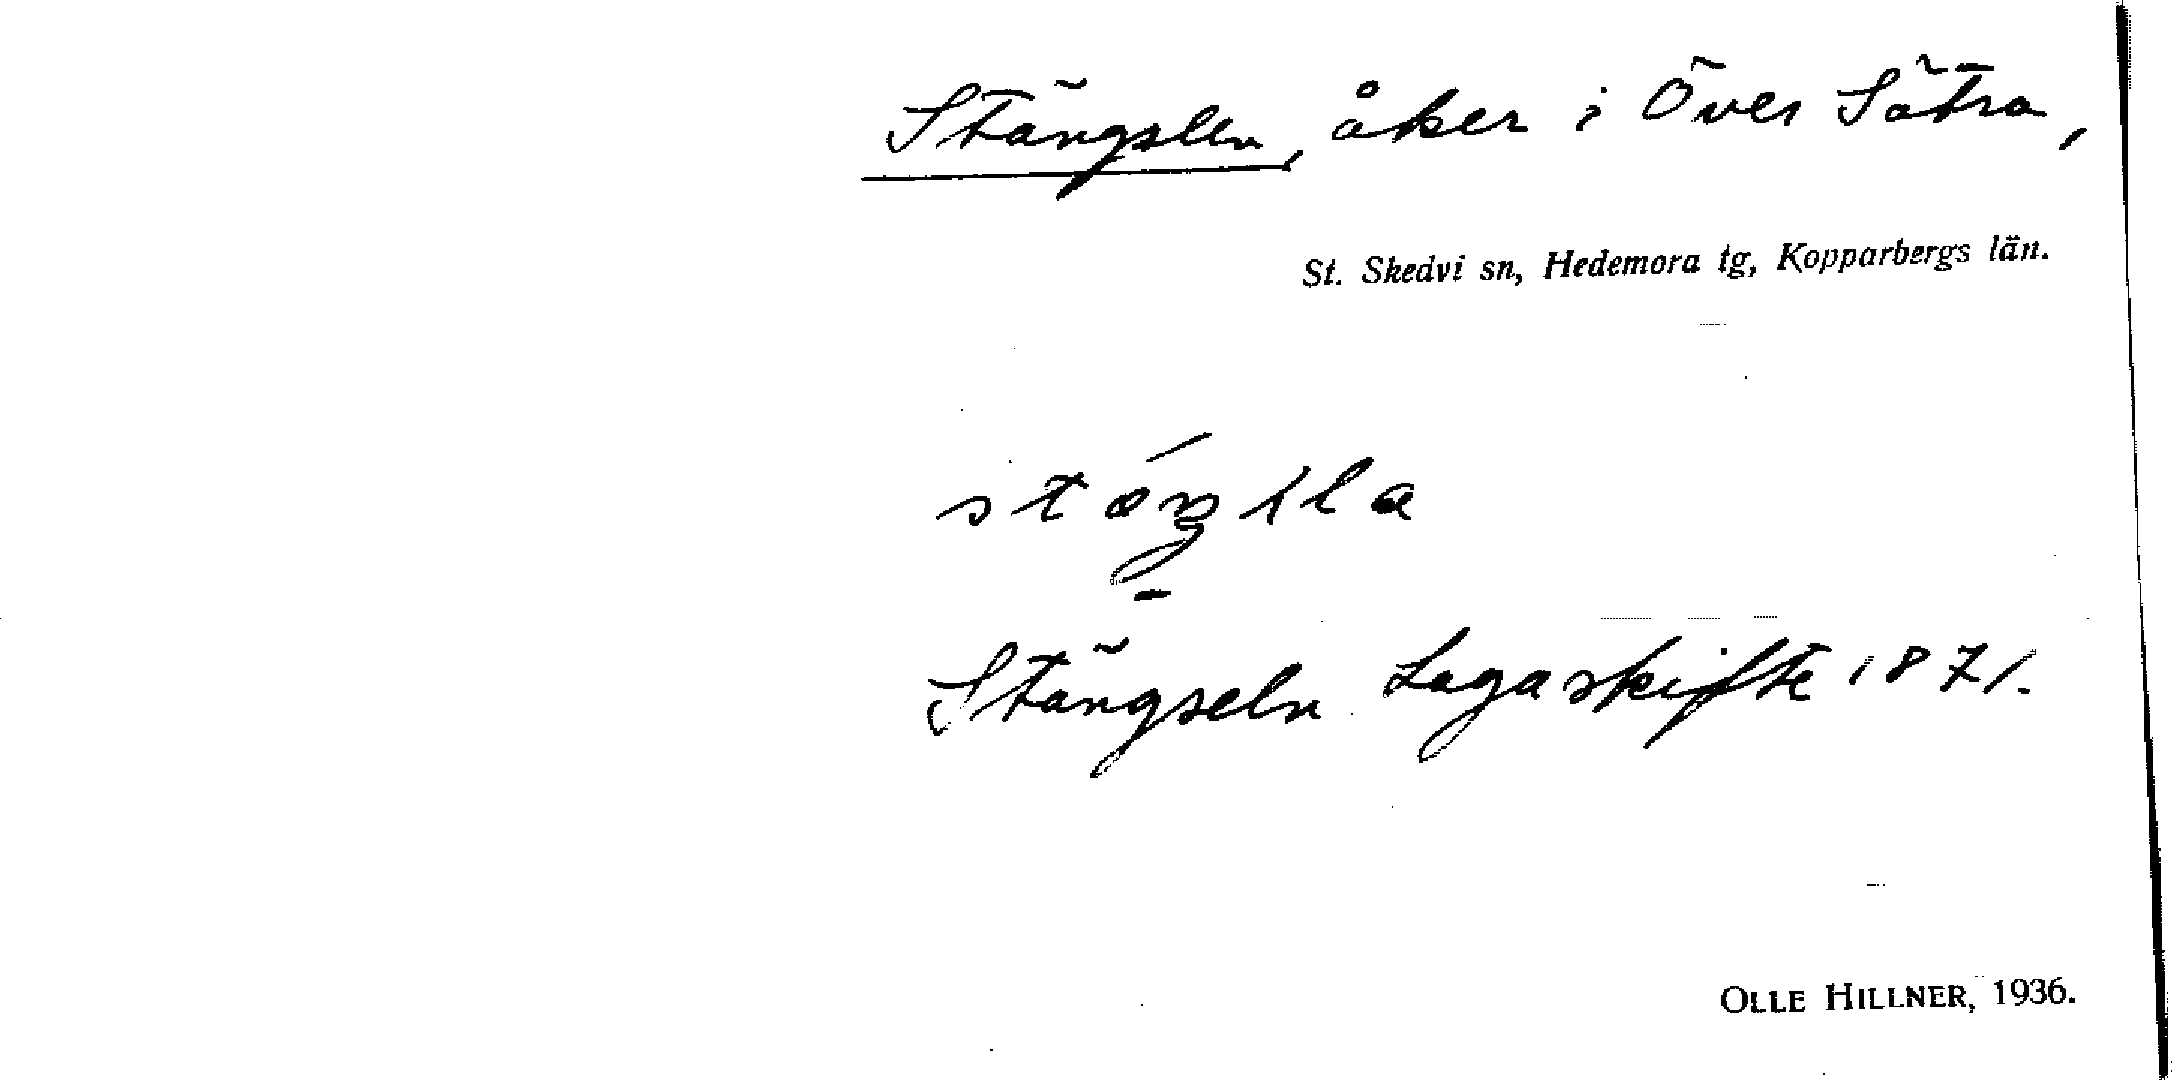 Stängslen, åker i Över Sätra,
St. Skedvi sn, Hedemora tg, Kopparbergs län.
Stängseln Lagaskifte 1871.
OLLE HILLNER, 1936.